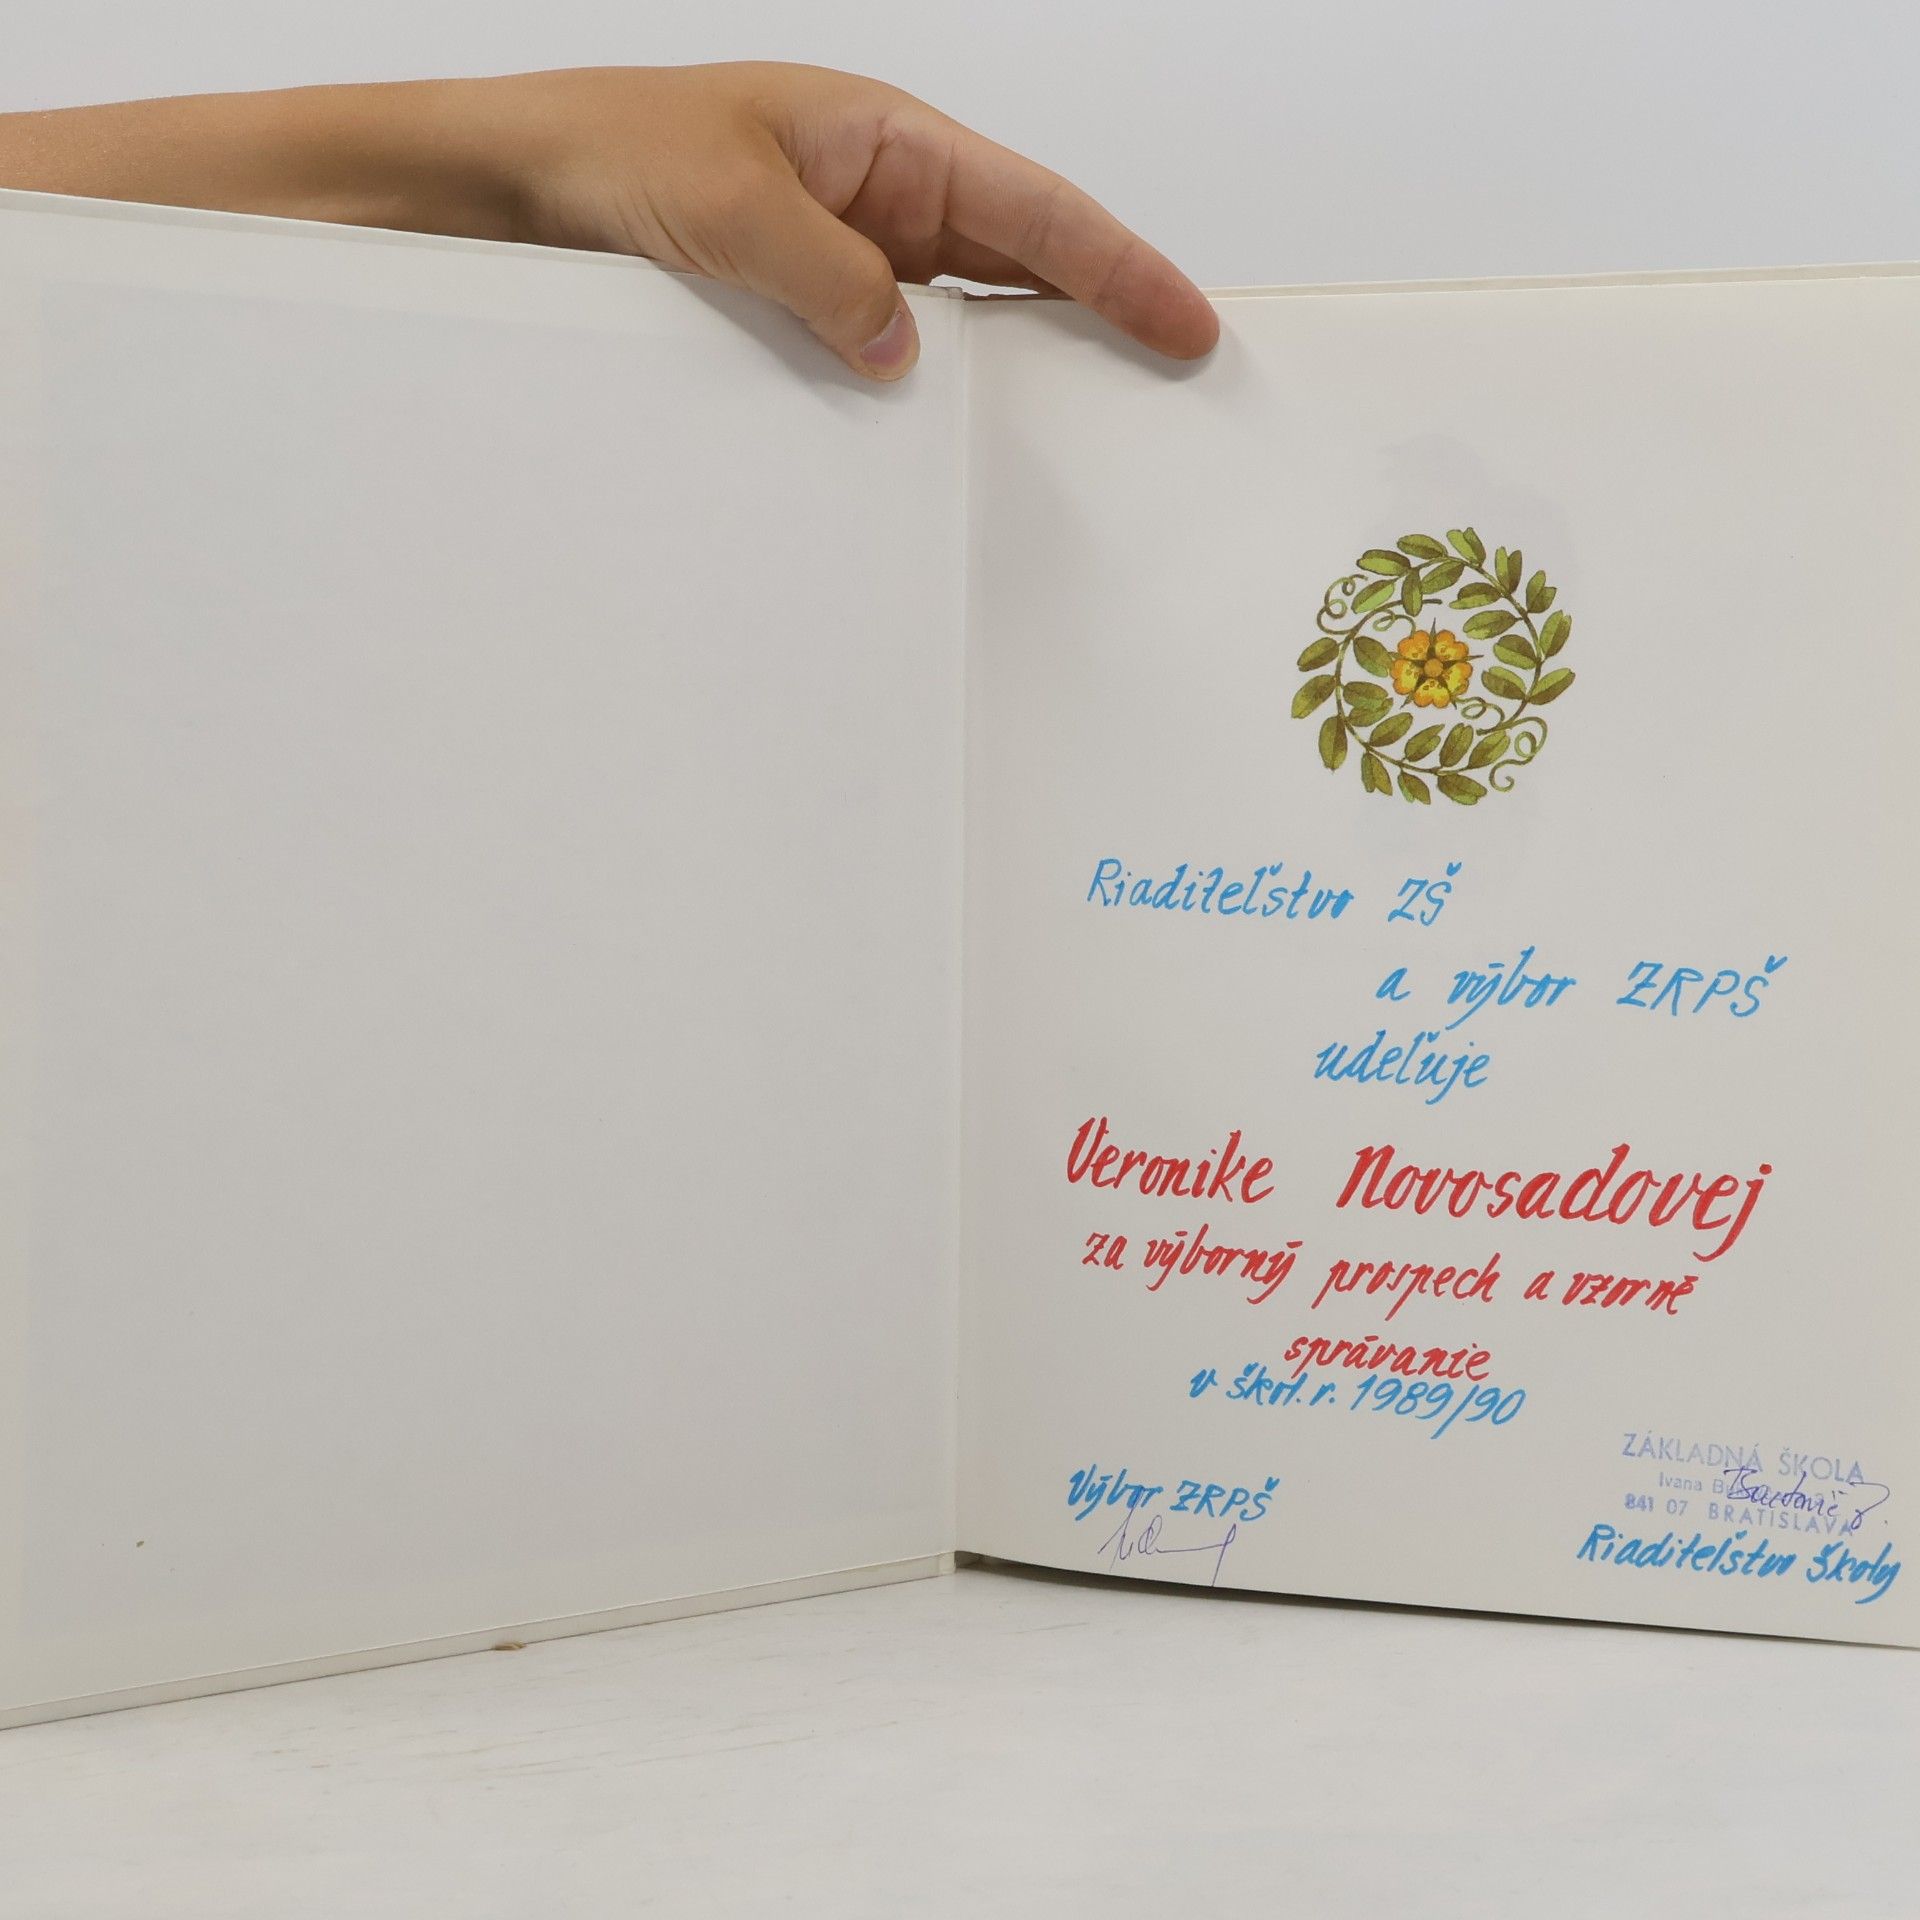 Riaditeľstvo ZŠ
a výbor ZRPŠ
udeľuje
Veronike Novosadovej
za výborný prospech a vzorné
správanie
v škol. r. 1989/90
Výbor ZRPŠ
ZÁKLADNÁ ŠKOLA
Ivana
841 07 BRATISLAVA
Riaditeľstvo školy